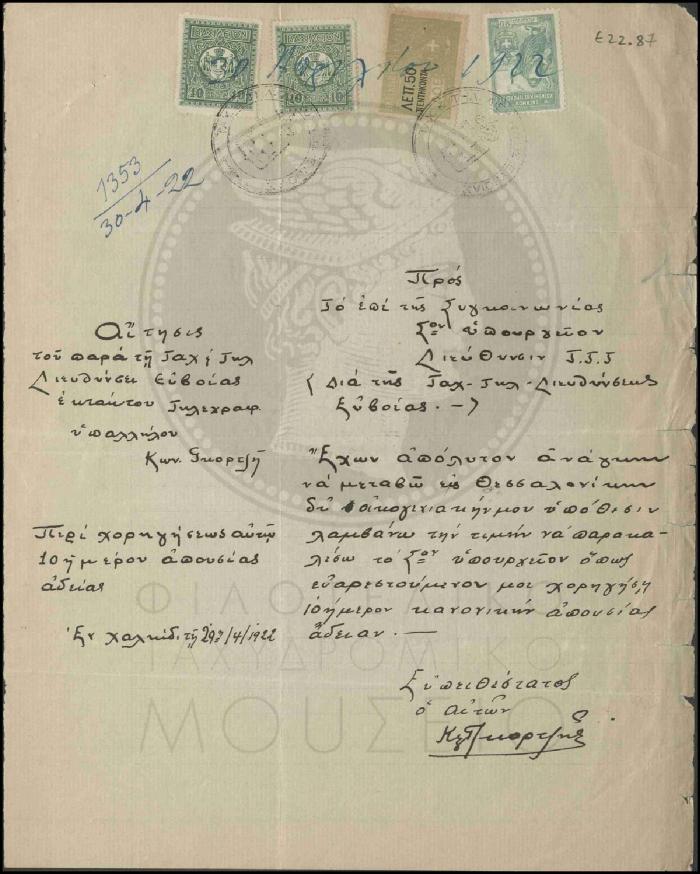 Ε22.87
30 Απριλίου 1922
10 10
10 10
ΛΕΠ. 50
ΠΕΝΤΗΚΟΝΤΑ
1353
30-4-22
Πρός
Τό ἐπί τῆς Συγκοινωνίας
Σον ὑπουργεῖον
Διεύθυνσιν Τ.Τ.Τ
(Διά τῆς Ταχ-Τηλ-Διευθήσεως
Εὐβοίας.-)
Αἴτησις
τοῦ παρά τῇ Ταχ ή Τηλ
Διευθήσει Εὐβοίας
ἐκτάκτου Τηλεγραφ.
ὑπαλλήλου
Κων. Γκορτζῆ
Περί χορηγήσεως αὐτῷ
10 ἡμέρου ἀπουσίας
ἀδείας
Ἐν Χαλκίδι τῇ 29ῃ/4/1922
Ἔχων ἀπόλυτον ἀνάγκην
νά μεταβῶ εἰς Θεσσαλονίκην
δι' οἰκογενιακήν μου ὑπόθεσιν
λαμβάνω τήν τιμήν νά παρακα-
λέσω τό Σον ὑπουργεῖον ὅπως
εὐαρεστούμενον μοι χορηγήσῃ
10ήμερον κανονικήν ἀπουσίας
ἄδειαν.—
Εὐπειθέστατος
ὁ αἰτῶν
Κ Γκορτζῆς
ΦΙΛΟΤΕΛΙΚΟ
ΤΑΧΥΔΡΟΜΙΚΟ
ΜΟΥΣΕΙΟ